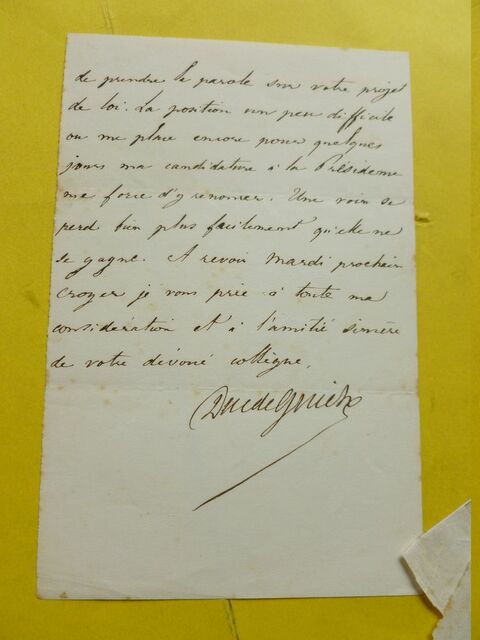 de prendre la parole sur votre projet
de loi. La position un peu difficile
où me place encore pour quelques
jours ma candidature à la Présidence
me force d'y renoncer. Une voix se
perd bien plus facilement qu'elle ne
se gagne. A revoir Mardi prochain
croyez je vous prie à toute ma
considération et à l'amitié sincère
de votre dévoué collègue.
Duc de Guiche